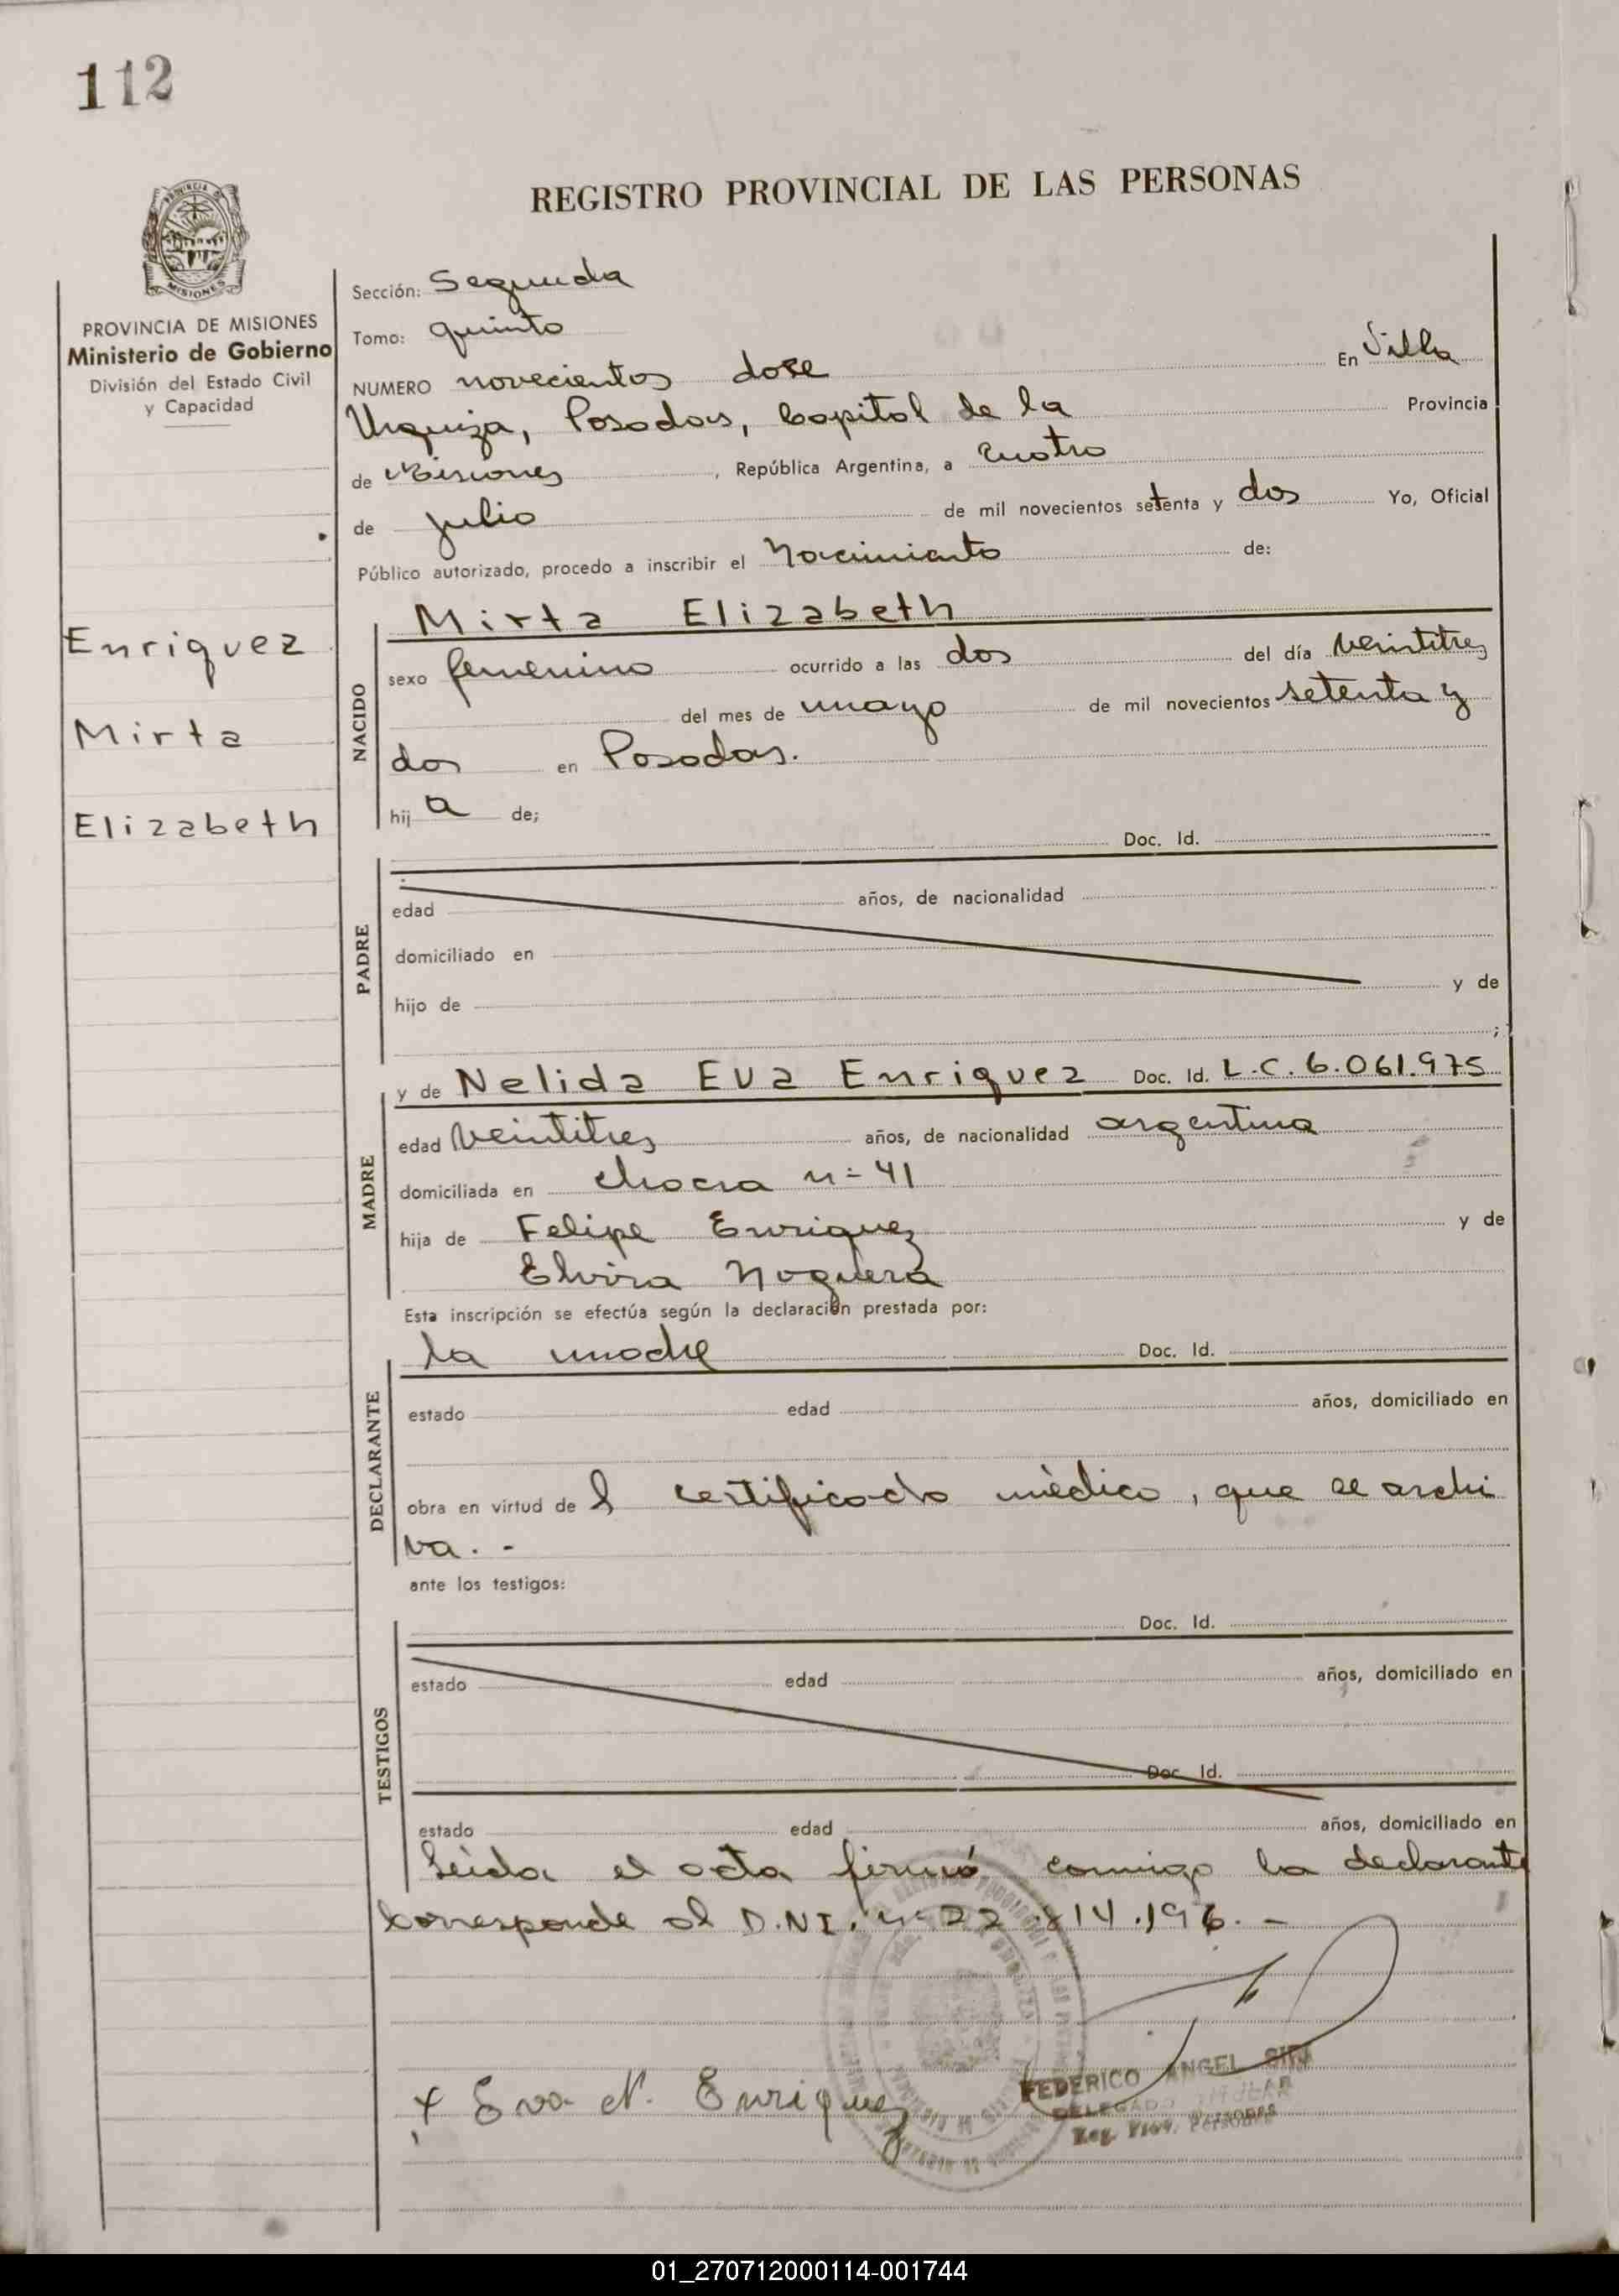 112
REGISTRO PROVINCIAL DE LAS PERSONAS
PROVINCIA DE MISIONES
Ministerio de Gobierno
División del Estado Civil
y Capacidad
Enriquez
Mirta
Elizabeth
Sección: Segunda
Tomo: quinto
NUMERO novecientos doce En Villa
Urquiza, Posadas, Capital de la Provincia
de Misiones, República Argentina, a cuatro
de julio de mil novecientos setenta y dos Yo, Oficial
Público autorizado, procedo a inscribir el Nacimiento de:
NACIDO
Mirta Elizabeth
sexo femenino ocurrido a las dos del día veintitres
del mes de mayo de mil novecientos setenta y
dos en Posadas.
hij a de;
PADRE
Doc. Id.
edad años, de nacionalidad
domiciliado en
hijo de y de
;
MADRE
y de Nelida Eva Enriquez Doc. Id. L.C. 6.061.975
edad veintitres años, de nacionalidad argentina
domiciliada en chacra n= 41
hija de Felipe Enriquez y de
Elvira Noguera
Esta inscripción se efectúa según la declaración prestada por:
DECLARANTE
la madre Doc. Id.
estado edad años, domiciliado en
obra en virtud de l certificado médico, que se archi
va. -
ante los testigos:
TESTIGOS
Doc. Id.
estado edad años, domiciliado en
Doc. Id.
estado edad años, domiciliado en
Leida el acta firmó conmigo la declarante
Corresponde al D.N.I. n= 22
x Eva N. Enriquez
FEDERICO ANGEL
DELEGADO TITULAR
Reg. Prov. Personas
01_270712000114-001744